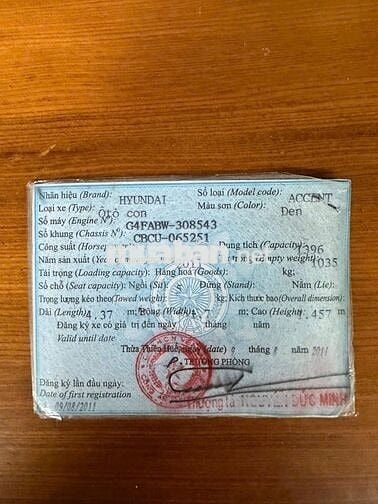 Nhãn hiệu (Brand): HYUNDAI Số loại (Model code): ACCENT
Loại xe (Type): Ôtô con Màu sơn (Color): Đen
Số máy (Engine N°): G4FABW-308543
Số khung (Chassis N°): CBCU-065251
Công suất (Horsep Dung tích (Capacity): 1396
Năm sản xuất (Yea empty weight): 1035
Tải trọng (Loading capacity): Hàng hoá (Goods): kg;
Số chỗ (Seat capacity): Ngồi (Sit): 5 Đứng (Stand): Nằm (Lie):
Trọng lượng kéo theo (Towed weight): kg; Kích thước bao (Overall dimension):
Dài (Length) 4,37 m; Rộng (Width) m; Cao (Height) 457 m
Đăng ký xe có giá trị đến ngày tháng năm
Valid until date
Thừa Thiên Huế, ngày (date) 9 tháng 8 năm 2011
TRƯỞNG PHÒNG
Đăng ký lần đầu ngày:
Date of first registration
09/08/2011
Thượng tá NGUYỄN ĐỨC MINH